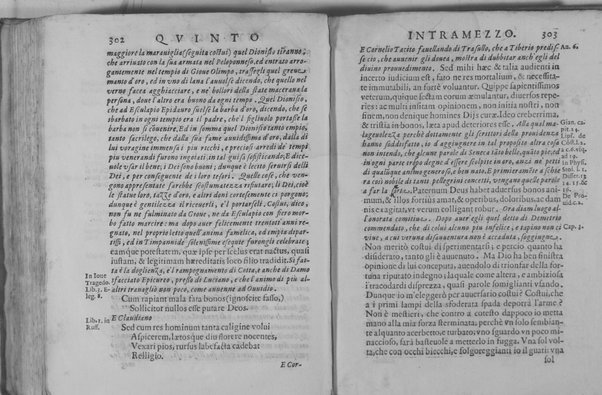 302 QVINTO
maggiore la marauiglia (segnita costui) quel Dionisio tiranno,
che arriuato con la sua armata nel Peloponneso, ed entrato arro-
gantemente nel tempio di Gioue Olimpo, trasse gli quel greue man-
to d'oro, ed in vno di lana l'auuolse dicendo, che quello nel
verno facea agghiacciare, e ne' bollori della state macerana la
persona, doue l'altro era buono da ogni tempo. Quel Dionisio,
che ad Esculapio Epidauro suelse la barba d'oro, dicendo, che se
sbarbato in ogni tempio era il padre, che'l figliuolo portasse la
barba non conuenire. Ed in somma quel Dionisio tanto empio,
tanto sacrilago, che dalla sua fame annidissima d'oro, dalla di
lui voragine immensa i più ricchi, e preziosi arredi de' tempi
più venerandi furono ingoiati,
nole vsar il bene; i Dei sono buoni; dunque è lecito seruirsi delli
Dei, e per conseguente de i loro tesori. Quelle cose, che ven-
gono appresentate farebbe
le statue loro, tazze, corone d'oro, e altri doni cortesemente ci porgono;
dunque è gentilezza il riceuerli, e'l portarseli a casa. Costui, dico,
non fu ne fulminato da Gioue, ne da Esculapio con fiero mor-
bo fatto marcire: ma dopo auer felicemente trent'otto anni re-
gnato, nel proprio letto
ssi, ed in Timpanide solenissime esequie furongli celebrate;
eamque potestatem, quæ ipse per scelus erat nactus, quasi
iustam, & legitimam hæreditatis loco filio tradidit. Si fat-
ta è la doglienza, e'l rampognamento di Cotta, e anche di Damo
sfacciato Epicureo, presso di Luciano, e che l'animo di più al-
tri trauagliò non poco, come auuenne ad Ouuidio.
In Ioue
Tragedo.
Lib. 3. E-
leg. 8.
Cum rapiant mala fata bonos (ignoscite fasso,)
Sollicitor nullos esse putare Deos.
Lib. 1. in
Ruff.
E Claudiano
Sed cum res hominum tanta caligine volui
Aspicerem, lætosque diu florere nocentes,
Vexari pios, rursus labefacta cadebat
Relligio.
E Cor-
INTRAMEZZO. 303
E Cornelio Tacito fauellando di Trasullo, che a Tiberio predis-
se ciò, che auuenir gli douea, mostra di dubbitar anch'egli del
diuino prouedimento. Sed mihi hæc & talia audienti in
incerto iudicium est, fato ne res mortalium, & necessita-
te immutabili, an forte voluantur. Quippe sapientissimos
veterum, quique sectam eorum æmulantur, diuersos repe-
ries: ac multis insitam opinionem, non initia nostri, non
finem, non denique homines Dijs curæ. Ideo creberrima,
& tristia in bonos, læta apud deteriores esse. Alla qual ma-
lageuolezza perchè dottamente gli scrittori della prouidenza
hanno soddisfatto, io d'aggiugnere in tal proposito altra cosa
non debbo, che quelle parole di Seneca sì belle,
in ogni parte dopo degne d'essere scolpite in oro, anzi ne' petti
di qualunque animo generoso, e ben nato. E primieramente a schie-
ra così nobile di tanti pellegrini concetti, vengano quelle parole
a far la strada. Paternum Deus habet aduersus bonos ani-
mum, & illos fortiùs amat, & operibus, doloribus, ac dam-
nis exagitat, vt verum colligant robor. Ora diam luogo al-
l'onorata comitiua. Dopo auer egli quel detto di Demetrio
commendato, che di colui altro più infelice, e tapino non ci
viue, a cui verun disauuentura non è accaduta, soggiugne.
Non meritò costui di sperimentarsi; e precìo quanto ha
disiderato, tanto gli è auuenuto. Ma Dio ha ben sinistra
opinione di lui conceputo, auendolo di trionfar della for-
tuna riputato indegno, laquale come altera, e ambiziosa
s'arrecarebbe a disprezzo, quasi parole somiglianti vsando.
Dunque io m'eleggerò per auuersario costui? Costui, che
a i primi lampi della sfoderata spada deporrà l'arme?
Non è mestieri, che contro a cotesto dappoco io metto
mano alla mia forza sterminata; perchè vn solo sembian-
te alquanto acerbetto, e turbato; vn sguardo vn poco mi-
naccioso, sarà basteuole a metterlo in fugga. Vna sol vol-
ta, che con occhi biecchi, e folgoreggianti io il guati vna
sol
An. 6.
Gian. ca-
pit. 15.
Lips. de
Cōst. l. 2.
Scot. l. 1.
De Pro-
uid. c. 2.
Cap. 3.